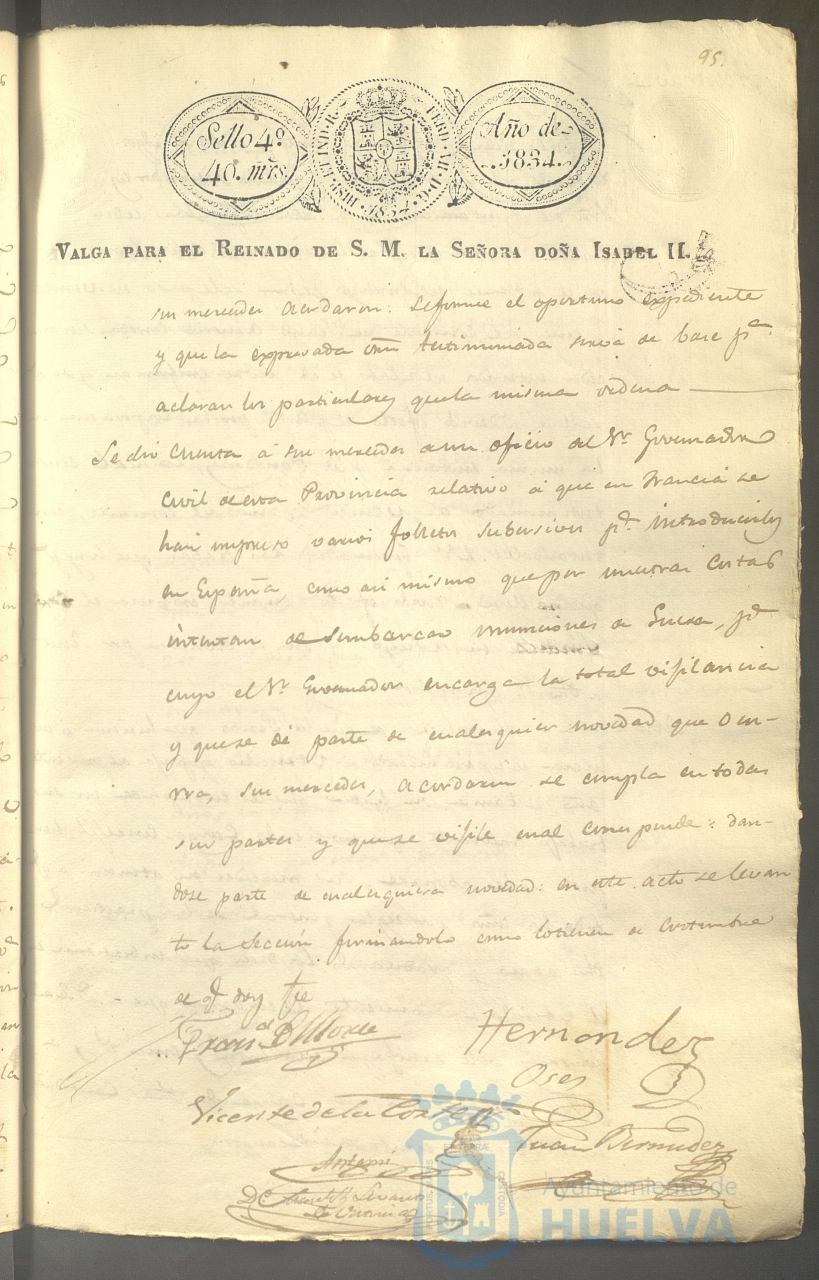 95.
Sello 4º
40. mrs.
HISP. ET IND. R. FERD. VII. D. G. 1834.
Año de
1834.
VALGA PARA EL REINADO DE S. M. LA SEÑORA DOÑA ISABEL II.
sus mercedes acordaron: se forme el oportuno expediente
y que la expresada orn testimoniada sirva de base pa
aclarar los particulares que la misma ordena
Se dio cuenta á sus mercedes de un oficio del Sr. Governador
Civil de esta Provincia relativo á que en Francia se
han impreso varios folletos subersivos pa introducirlos
en España, como asi mismo que por nuestras Costas
intentan desembarcar municiones de Guerra, pa
cuyo el Sr. Governador encarga la total vigilancia
y que se dé parte de cualesquier novedad que ocur-
rra, sus mercedes, acordaron se cumpla en todas
sus partes y que se vigile cual corresponde: dan-
dose parte de cualesquiera novedad: en este acto se levan
to la Seccion firmandolo como lo tienen de costumbre
de q doy fe
Hernandez
Oses
Vicente de la Corte
Juan Bermudez
Antemi
Ayuntamiento de
HUELVA